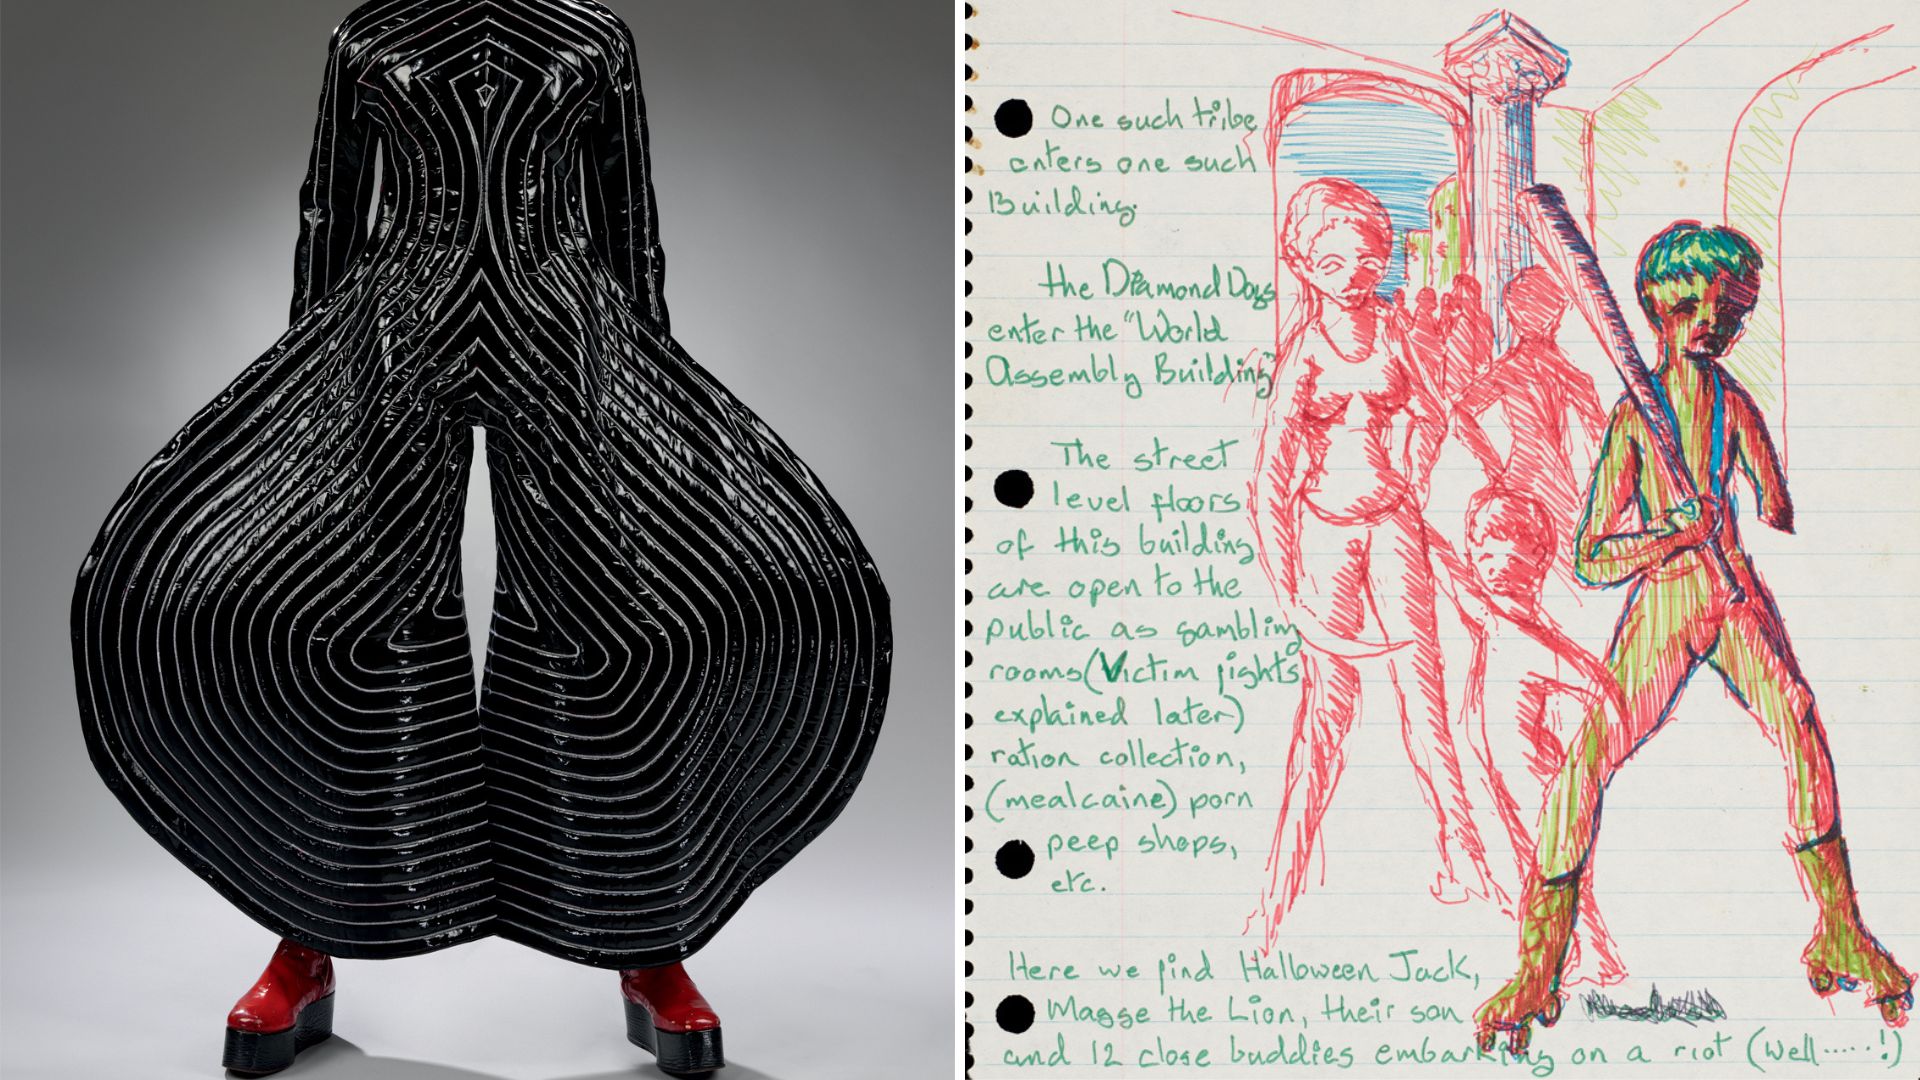 One such tribe
enters one such
Building.
the Diamond Dogs
enter the "World
Assembly Building"
The street
level floors
of this building
are open to the
public as gambling
rooms (Victim fights
explained later)
ration collection,
(mealcaine) porn
peep shops,
etc.
Here we find Halloween Jack,
Magge the Lion, their son
and 12 close buddies embarking on a riot (well.....!)